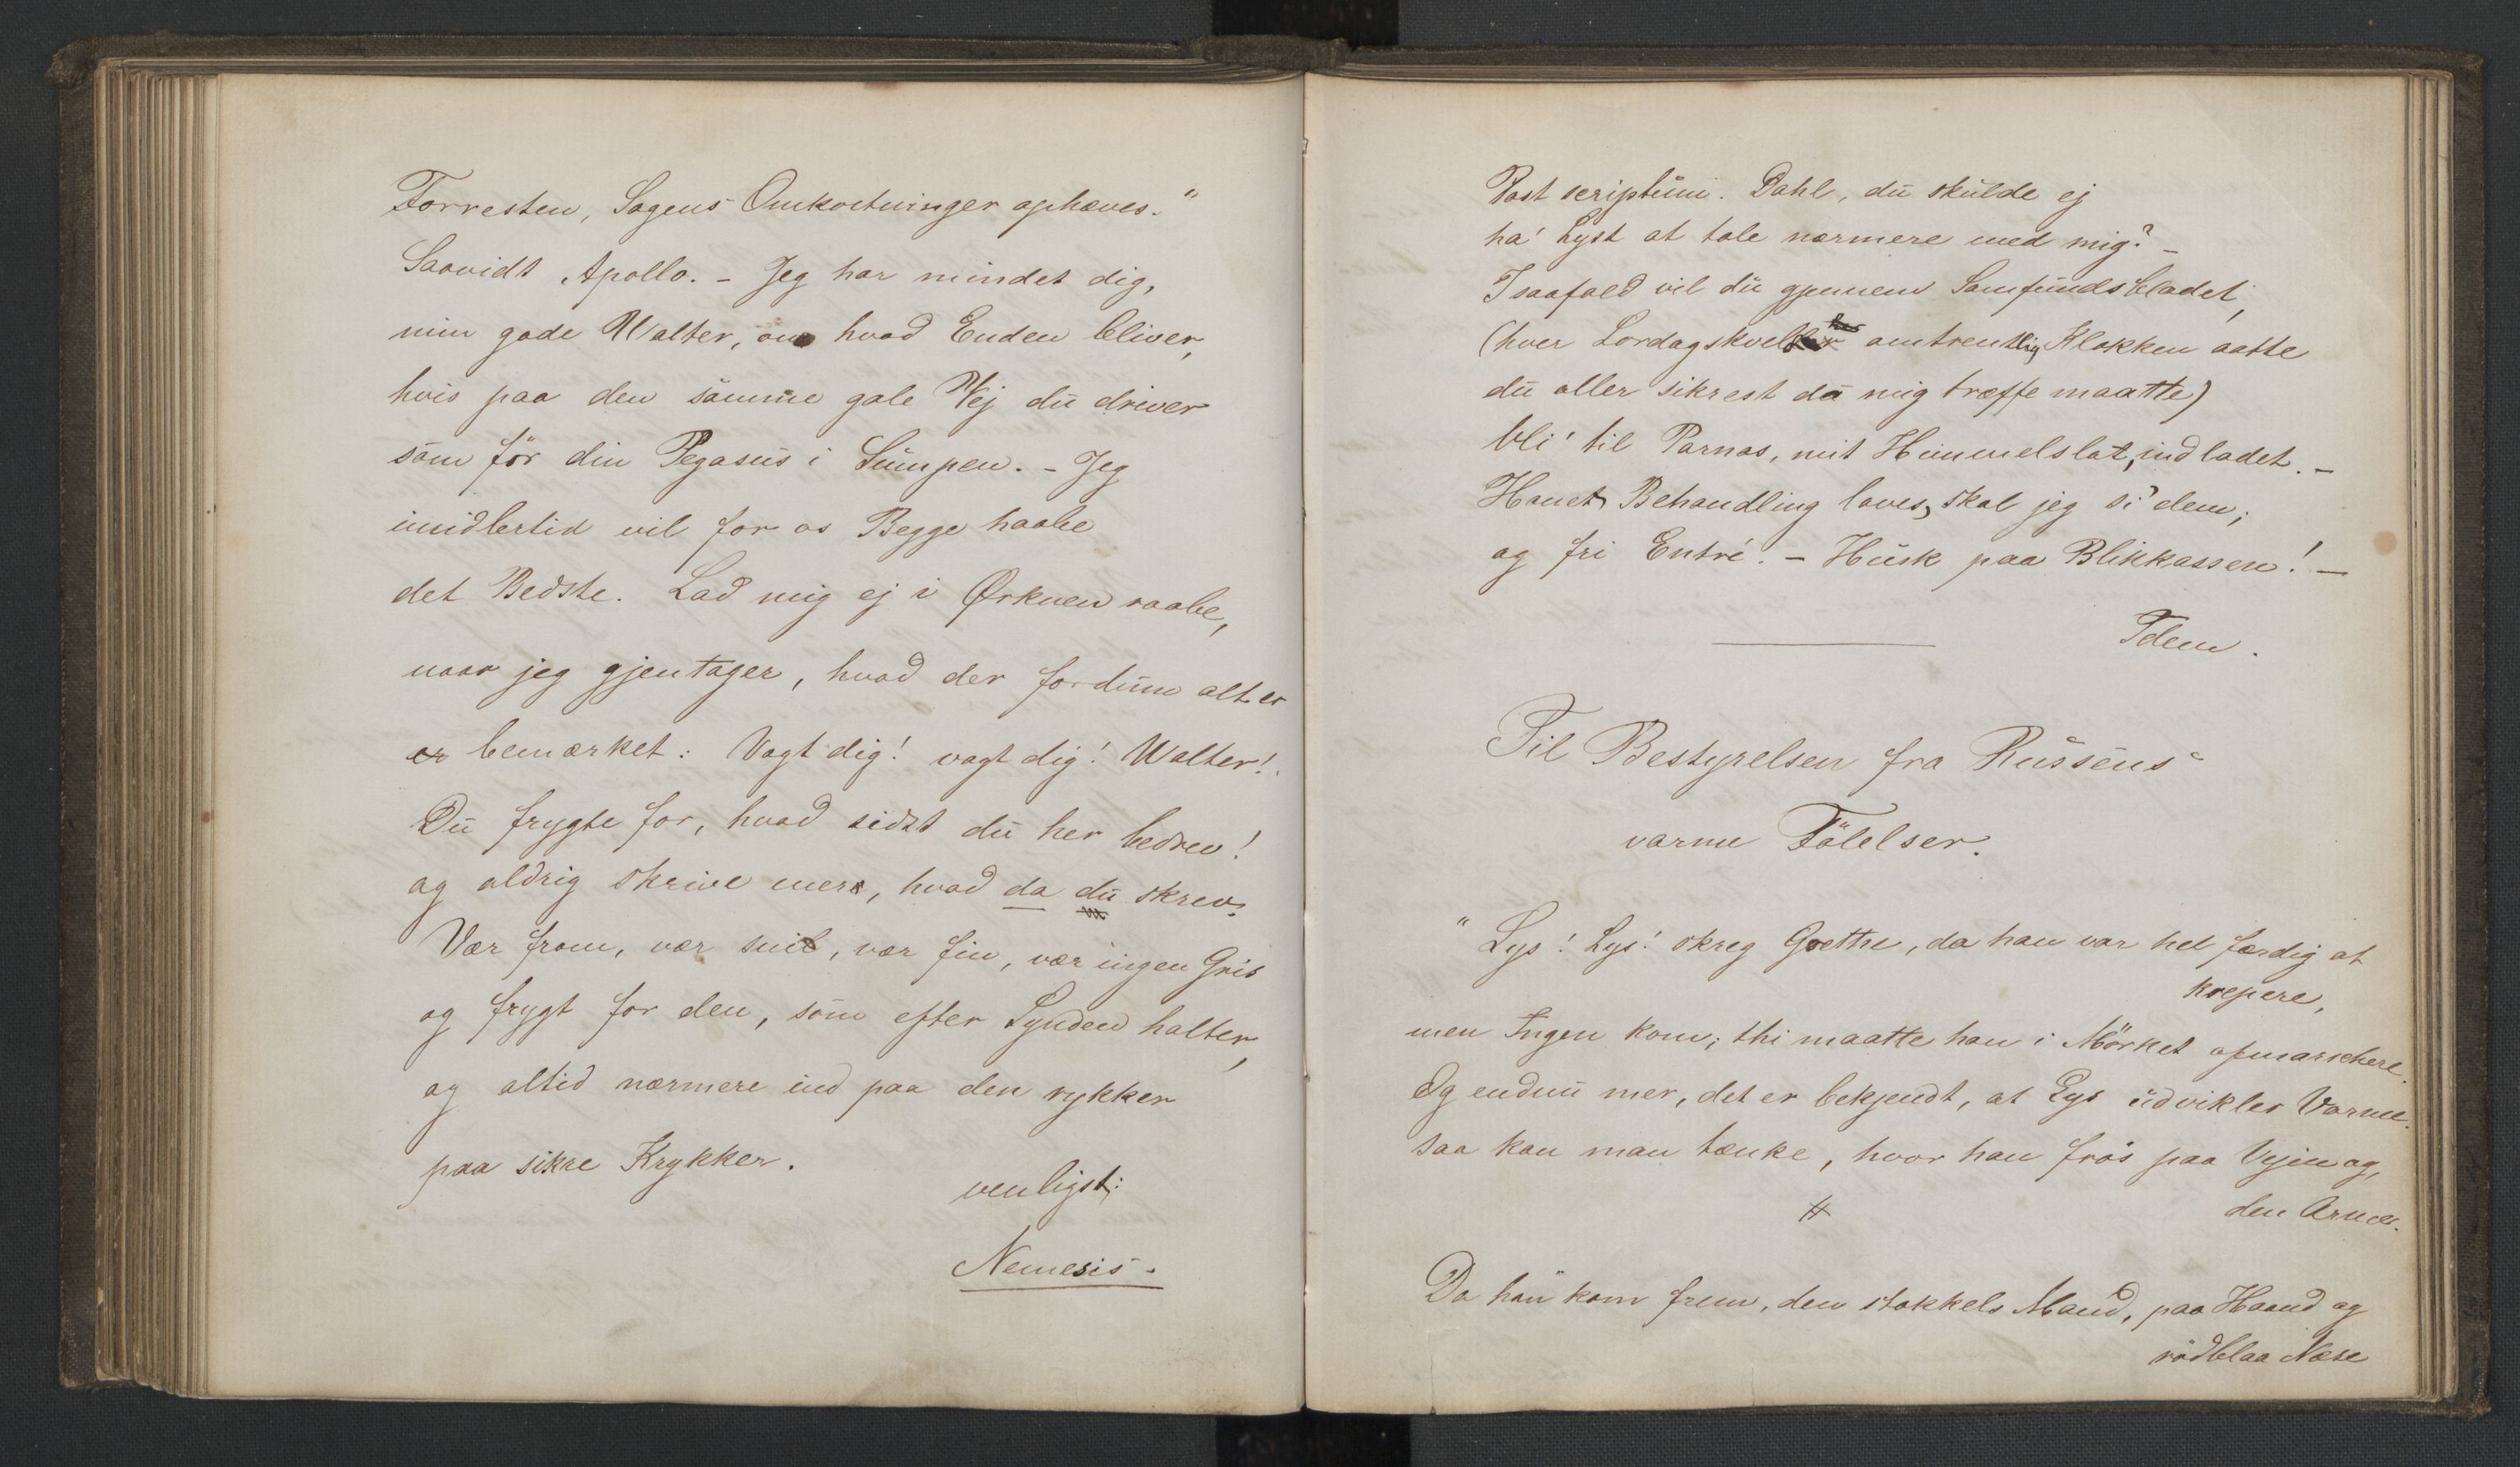 Forresten, Sagens Omkostninger ophæves."
Saavidt Apollo. – Jeg har mindet dig,
min gode Walter, om hvad Enden bliver,
hvis paa den samme gale Vej du driver
som før din Pegasus i Sumpen. – Jeg
imidlertid vil for os Begge haabe
det Bedste. Lad mig ej i Ørknen raabe,
naar jeg gjentager, hvad der fordum alt er
er bemærket: Vogt dig! vogt dig! Walter!
Du frygte for, hvad sidst du her bedrev!
og aldrig skrive mere, hvad da du skrev.
Vær from, vær snil, vær fin, vær ingen Gris
og frygt for den, som efter Synden halter,
og altid nærmere ind paa den rykker
paa sikre Krykker.
venligst:
Nemesis.
Post scriptum. Dahl, du skulde ej
ha' Lyst at tale nærmere med mig? –
I saafald vil du gjennem Samfundsbladet,
(hver Lørdagskveld omtrentlig Klokken aatte
du aller sikrest da mig træffe maatte)
bli' til Parnas, mit Himmelslot, indladet. –
Honet Behandling loves, skal jeg si' dem;
og fri Entré. – Husk paa Blikkassen! –
Idem.
Til Bestyrelsen fra Russens
varme Følelser.
"Lys! Lys! skreg Goethe, da han var hel færdig at
krepere,
men Ingen kom; thi maatte han i Mørket afmarschere.
Og endnu mer, det er bekjendt, at Lys udvikler Varme.
saa kan man tænke, hvor han frøs paa Vejen og,
den Arme.
Da han kom frem, den stakkels Mand, paa Haand og
rødblaa Næse